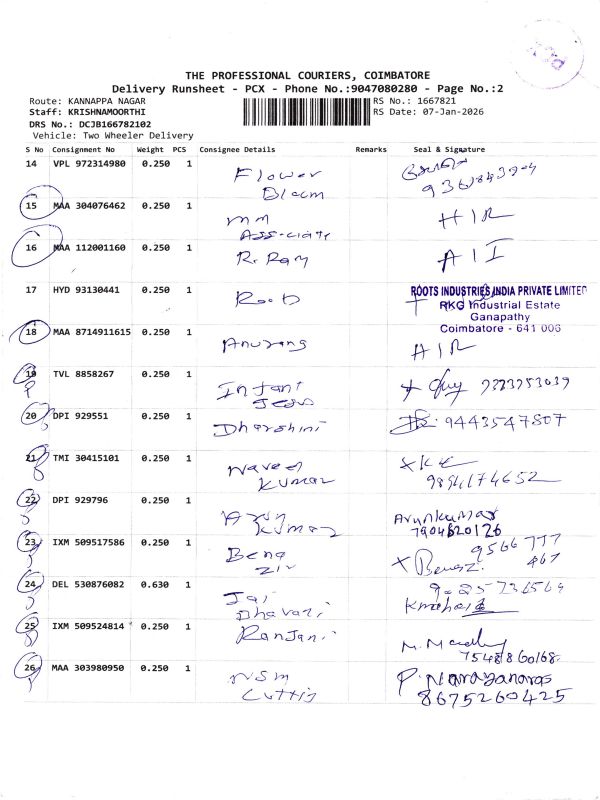 THE PROFESSIONAL COURIERS, COIMBATORE
Delivery Runsheet - PCX - Phone No.:9047080280 - Page No.:2
Route: KANNAPPA NAGAR
Staff: KRISHNAMOORTHI
DRS No.: DCJB166782102
Vehicle: Two Wheeler Delivery
RS No.: 1667821
RS Date: 07-Jan-2026
S No Consignment No Weight PCS Consignee Details Remarks Seal & Signature
14 VPL 972314980 0.250 1 Flower
Bloom
15 MAA 304076462 0.250 1 MM
Associate
16 MAA 112001160 0.250 1 R. Ram
17 HYD 93130441 0.250 1 Roots
ROOTS INDUSTRIES INDIA PRIVATE LIMITED
RKG Industrial Estate
Ganapathy
Coimbatore - 641 006
18 MAA 8714911615 0.250 1 Anurang
19 TVL 8858267 0.250 1 Infant
Jesus
20 DPI 929551 0.250 1 Dharshini 9443547807
21 TMI 30415101 0.250 1 Naveen
Kumar 9894174652
22 DPI 929796 0.250 1 Arun
Kumar
Arunkumar
7904820126
23 IXM 509517586 0.250 1 Bena
Ziv
9566 777
467
24 DEL 530876082 0.630 1 Jai
Bhavani
25 IXM 509524814 0.250 1 Ranjani
7548860168
26 MAA 303980950 0.250 1 NSM
Cuttis
P. Narayanaras
8675260425